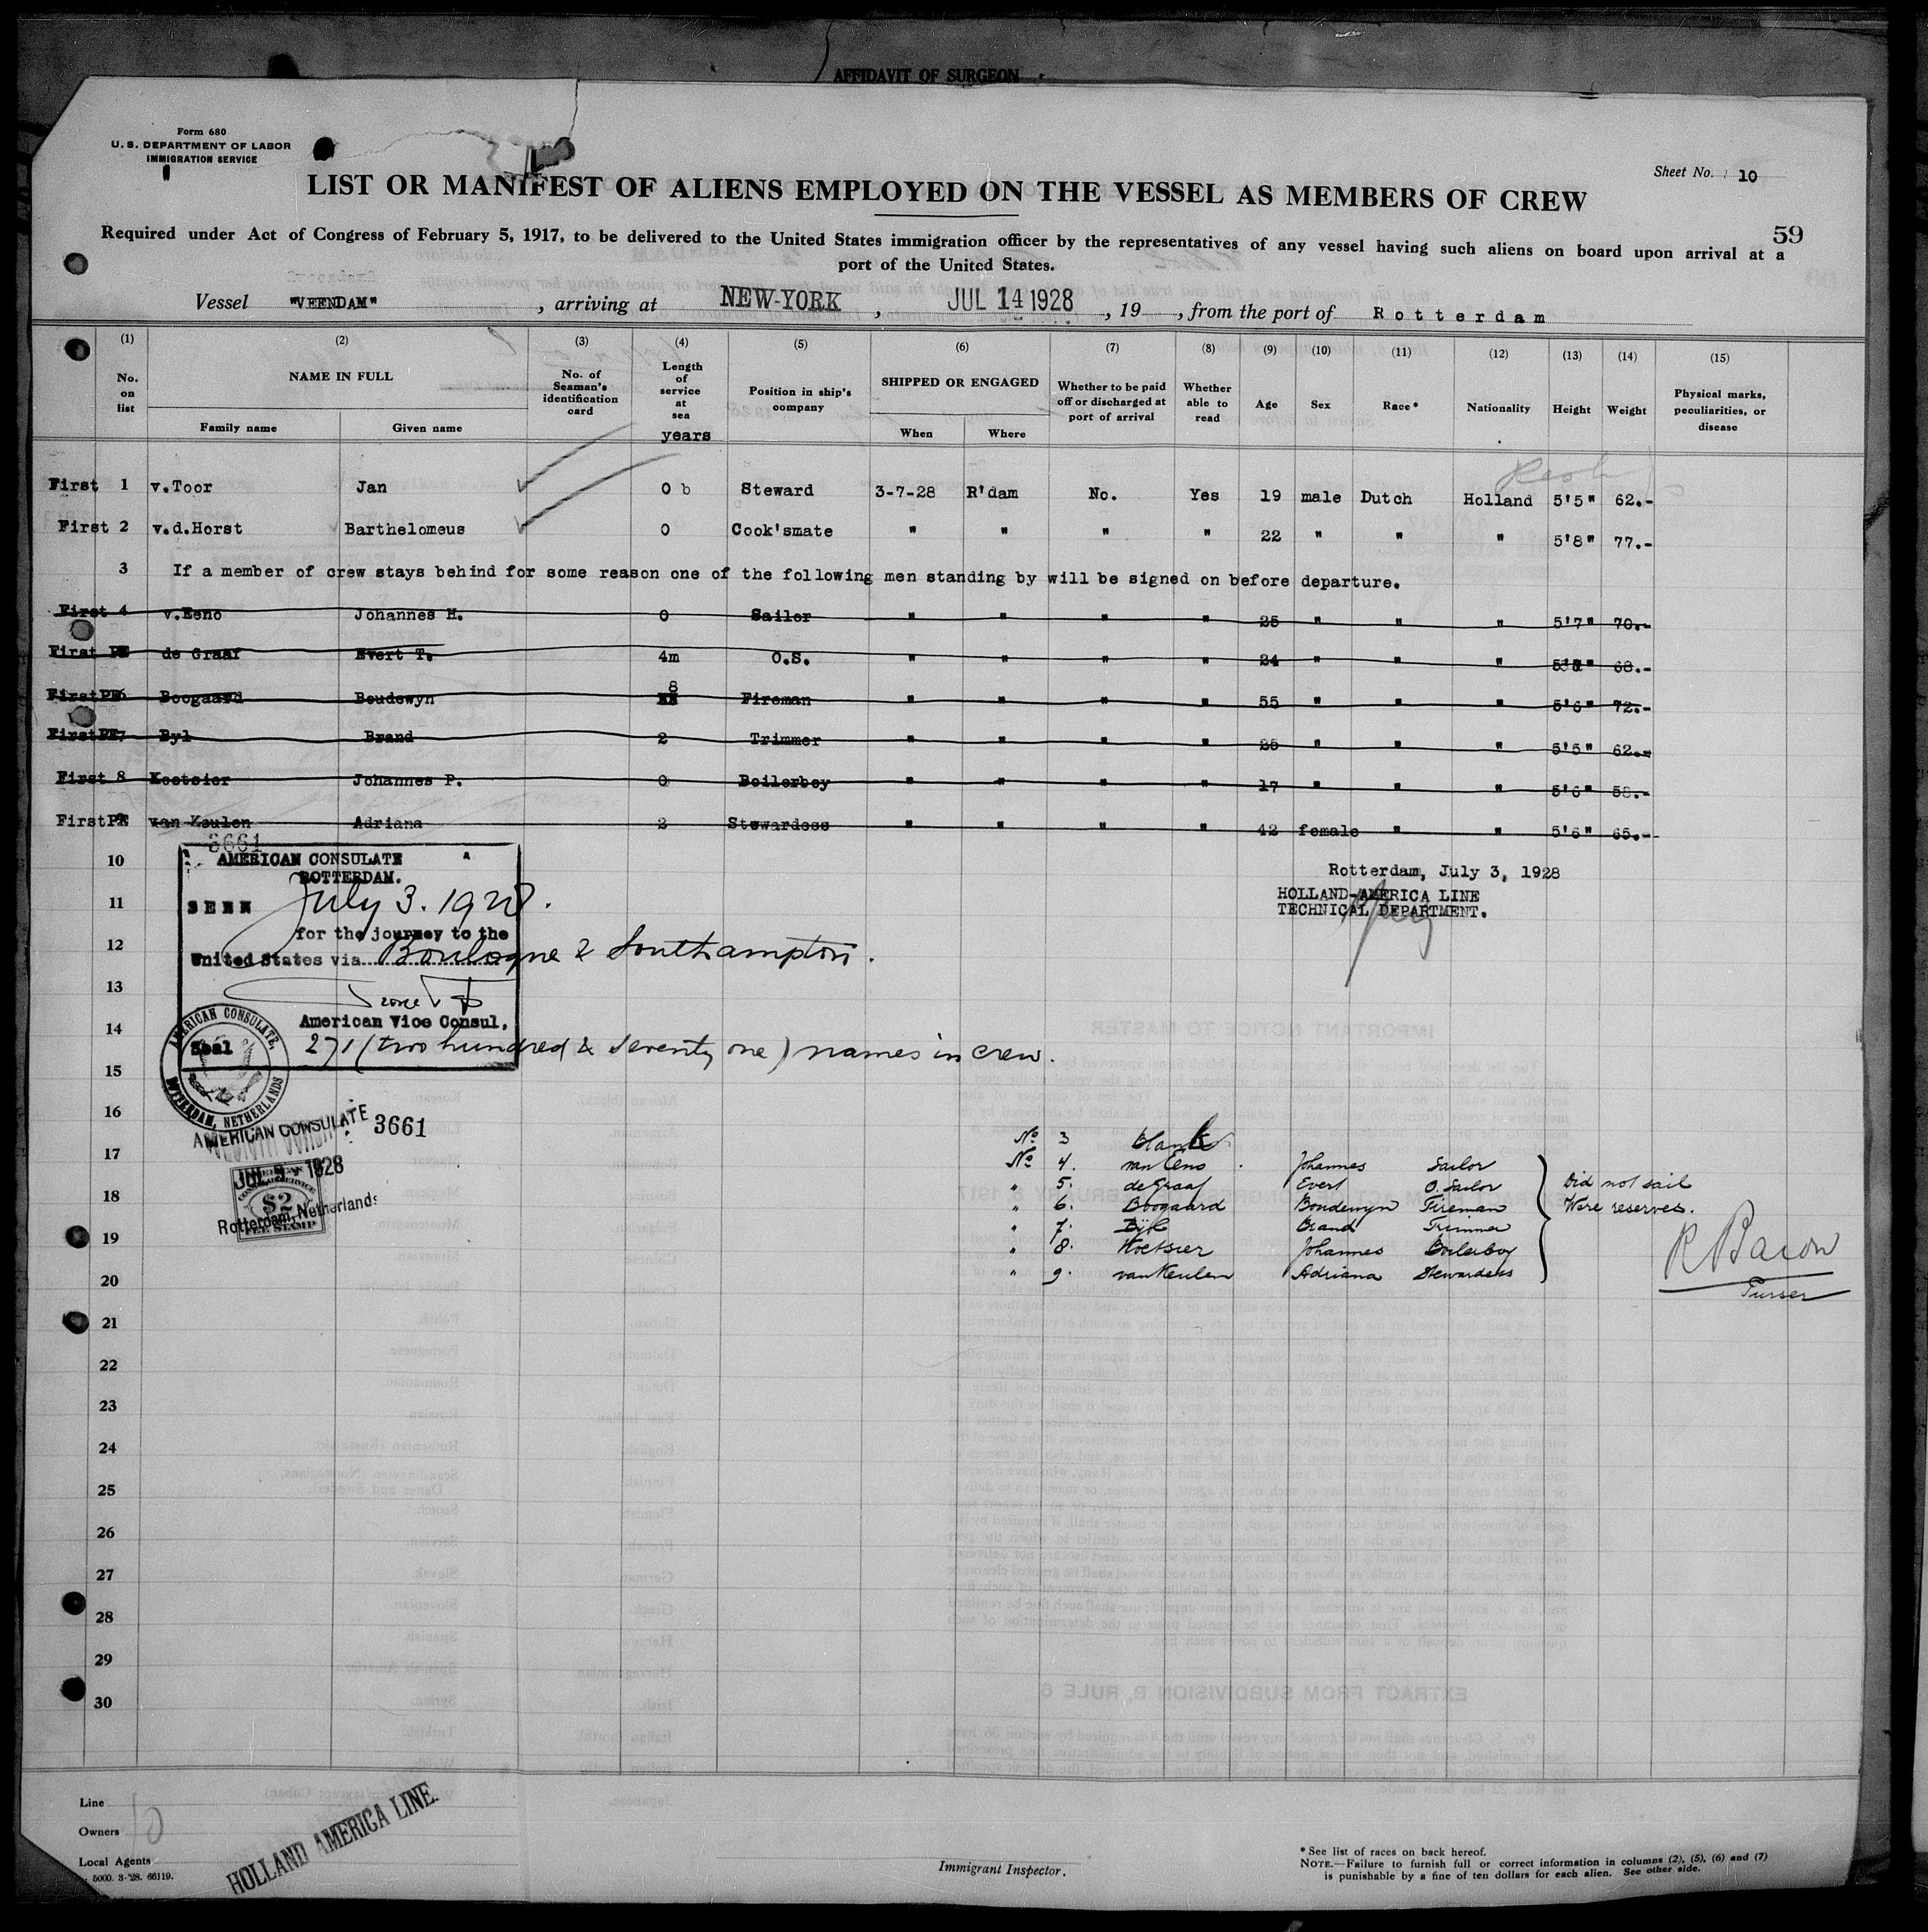 AFFIDAVIT OF SURGEON
Form 680
U. S. DEPARTMENT OF LABOR
IMMIGRATION SERVICE
Sheet No. 10
LIST OR MANIFEST OF ALIENS EMPLOYED ON THE VESSEL AS MEMBERS OF CREW
59
Required under Act of Congress of February 5, 1917, to be delivered to the United States immigration officer by the representatives of any vessel having such aliens on board upon arrival at a
port of the United States.
Vessel "VEENDAM" , arriving at NEW-YORK , JUL 14 1928 , 19 , from the port of Rotterdam
(1) (2) (3) (4) (5) (6) (7) (8) (9) (10) (11) (12) (13) (14) (15)
No. on list NAME IN FULL Family name Given name No. of Seaman's identification card Length of service at sea years Position in ship's company SHIPPED OR ENGAGED When Where Whether to be paid off or discharged at port of arrival Whether able to read Age Sex Race* Nationality Height Weight Physical marks, peculiarities, or disease
First 1 v.Toor Jan 0 b Steward 3-7-28 R'dam No. Yes 19 male Dutch Holland 5'5" 62.-
First 2 v.d.Horst Barthelomeus 0 Cook'smate " " " " 22 " " " 5'8" 77.-
3 If a member of crew stays behind for some reason one of the following men standing by will be signed on before departure.
First 4 v.Eeno Johannes H. 0 Sailor " " " " 25 " " " 5'7" 70.-
First de Graaf Evert T. 4m O.S. " " " " 24 " " " 68.-
First 6 Boogaard Boudewyn 8 Fireman " " " " 55 " " " 5'6" 72.-
First 7 Byl Brand 2 Trimmer " " " " 25 " " " 5'5" 62.-
First 8 Koetsier Johannes P. 0 Boilerboy " " " " 17 " " " 5'6" 58.-
First van Keulen Adriana 2 Stewardess " " " " 42 female " " 5'6" 65.-
3661
10
AMERICAN CONSULATE
ROTTERDAM.
Rotterdam, July 3, 1928
HOLLAND-AMERICA LINE
TECHNICAL DEPARTMENT.
11
SEEN July 3. 1928.
for the journey to the
12
United States via Boulogne & Southampton.
13
American Vice Consul,
14
AMERICAN CONSULATE,
ROTTERDAM, NETHERLANDS
Seal 271 (two hundred & seventy one) names in crew.
15
16
AMERICAN CONSULATE 3661
No 3 blank
17
JUL 3 - 1928
$2
FEE STAMP
Rotterdam, Netherlands
No 4. van Eeno Johannes Sailor
18
" 5. de Graaf Evert O. Sailor Did not sail
" 6. Boogaard Boudewyn Fireman Were reserves.
19
" 7. Bijl Brand Trimmer
" 8. Koetsier Johannes Boilerboy
R Bacon
20
" 9. van Keulen Adriana Stewardess
Purser
21
22
23
24
25
26
27
28
29
30
Line
Owners
Local Agents
5000. 3-'28. 66119.
HOLLAND AMERICA LINE.
Immigrant Inspector.
* See list of races on back hereof.
NOTE.—Failure to furnish full or correct information in columns (2), (5), (6) and (7)
is punishable by a fine of ten dollars for each alien. See other side.